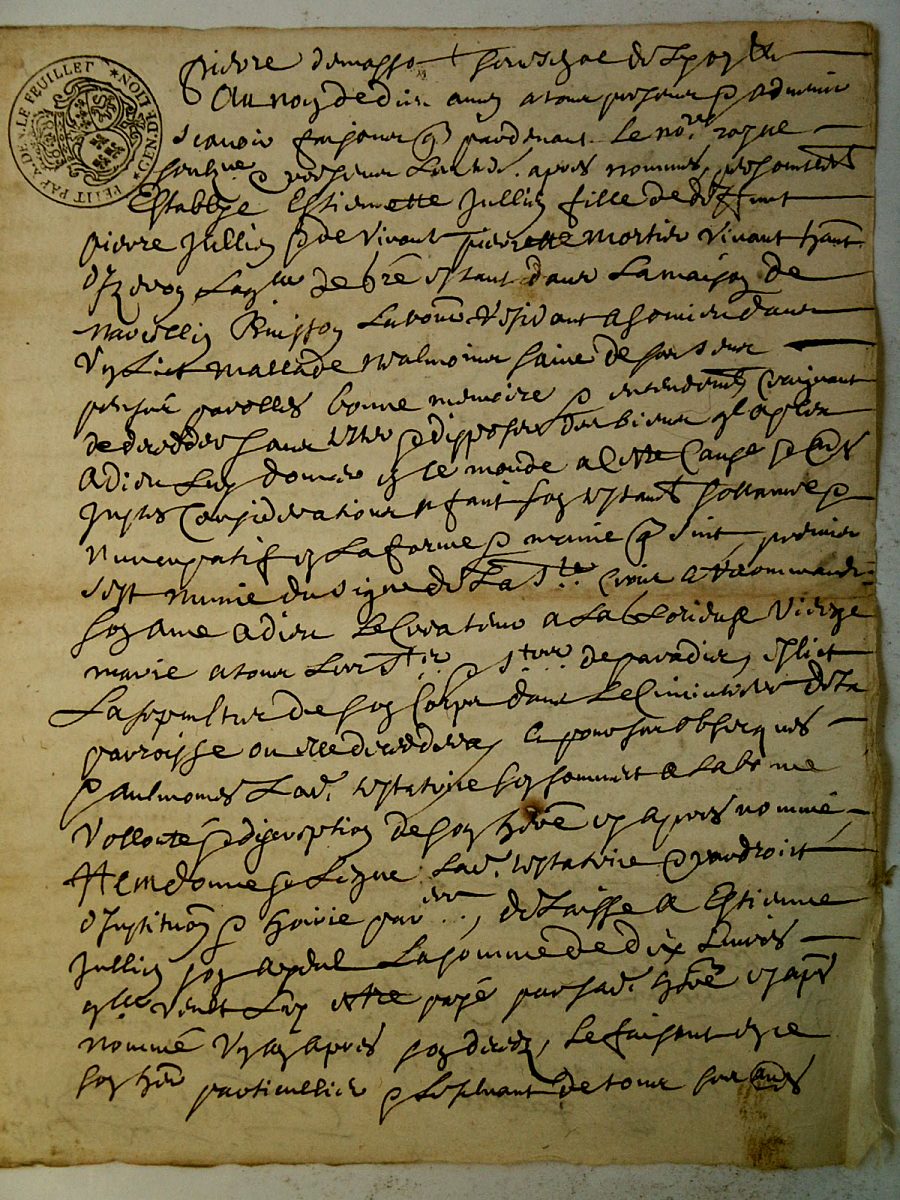 PETIT PAPIER DE LE FEUILLET GN. DE LION
pierre demasso seneschal de Lyon
Au nom de dieu amen a tous presens & advenir
scavoir faisons que pardevant le no.re royal
soubzne & presens Les tes. apres nommes, personnellemt
Establye Estiennette Jullien fille de deffunt
pierre Jullien & de vivant pierrette mortier vivant
estant dans La maison de
Buisson Labour Residant a dans
Un Lict mallade nealmoins saine de ses sens
parolles bonne memoire & entendemt craignant
de decedder sans tester & dispposer des biens ql a pleu
A dieu Luy donner en ce monde a cette cause & aues
Justes Considerations A fait son testamt &
Nuncupatif en La forme & maniere que suit, premier
sest munie du signe de La Ste Croix a Recommandé
son ame a dieu Le Createur a La Glorieuse Vierge
marie a tous Les Sts & Stes de paradis, eslict
La sepulture de son Corps dans Le Cimintiere de La
parroisse ou elle deceddera, & pour ses obseques
& aulmones Lad. testatrice sen sommet a La bonne
Vollonté & discreption de son here cy apres nommé
Item donne & Legue Lad. testatrice & par droict
d'Institution & hoirie par.re delaisse a Estienne
Jullien son La somme de dix Livres
qlle veult Luy estre payé par sad. here cy apres
nommé Un an apres son deces, Le faisant en ce
son her particullier & de tous ses aues